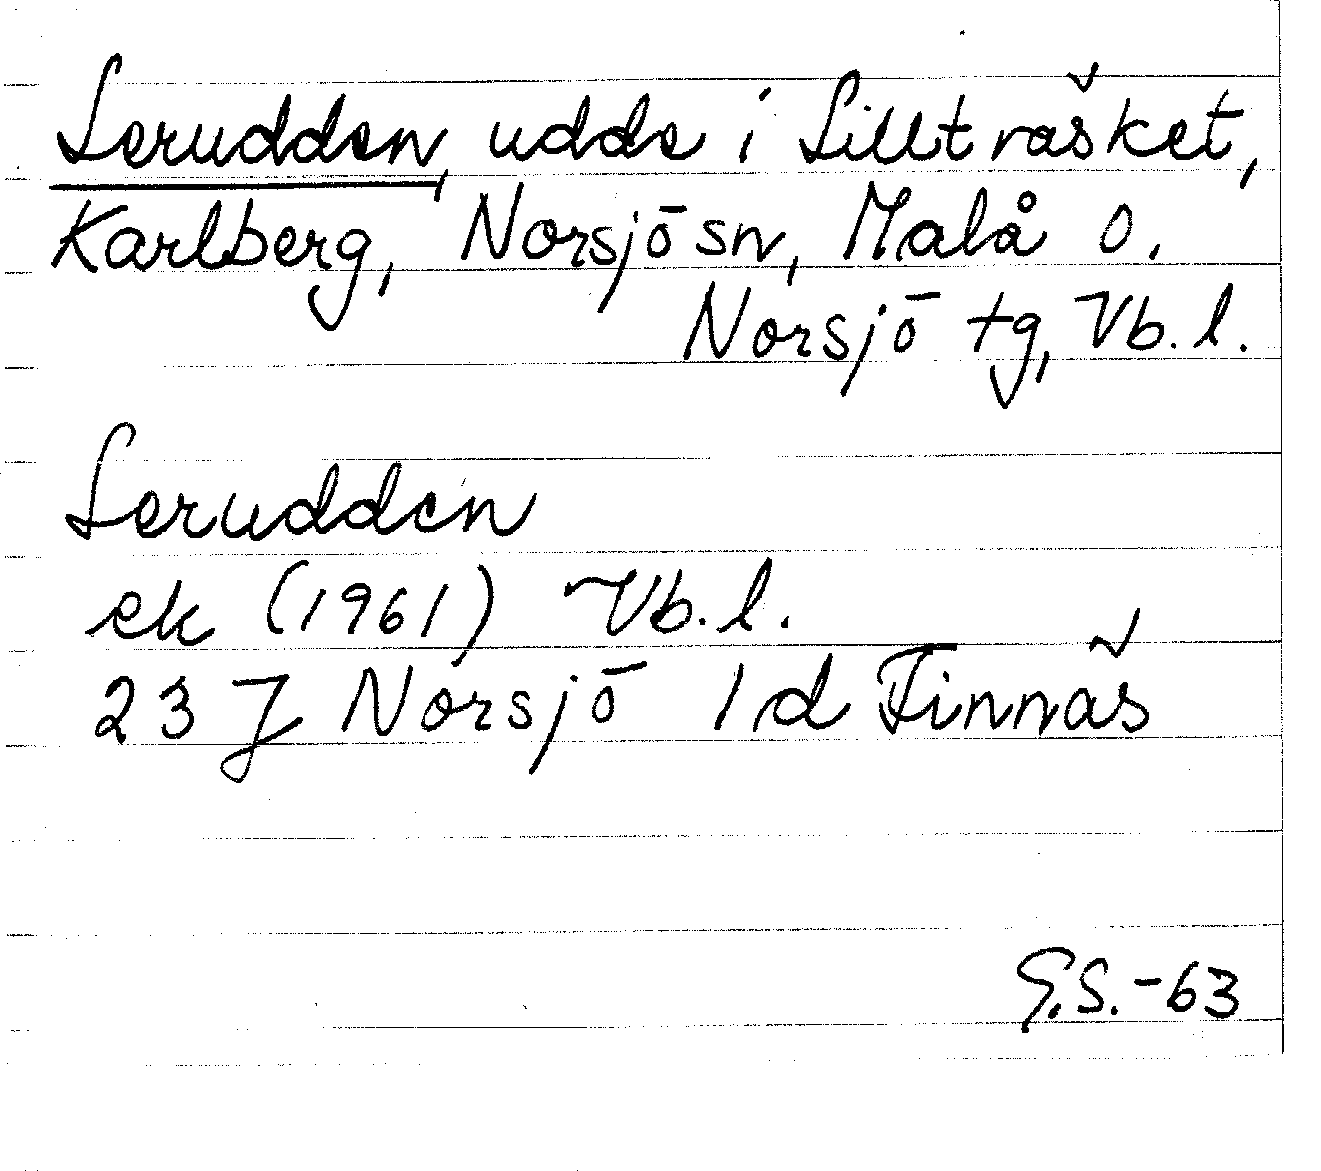 Lerudden, udde i Lillträsket,
Karlberg, Norsjö sn, Malå o.
Norsjö tg, Vb. l.
Lerudden
ek (1961) Vb. l.
23 J Norsjö 1 d Finnäs
G.S. -63